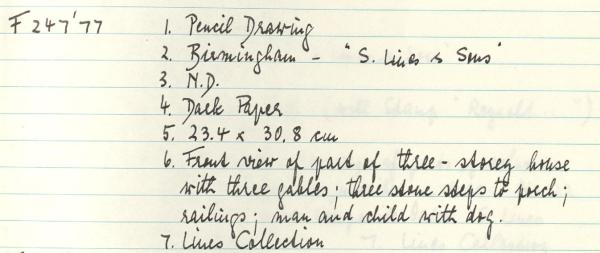 F247'77 1. Pencil Drawing
2. Birmingham - "S. Lines & Sons"
3. N.D.
4. Dark Paper
5. 23.4 x 30.8 cm
6. Front view of part of three-storey house
with three gables; three stone steps to porch;
railings; man and child with dog.
7. Lines Collection